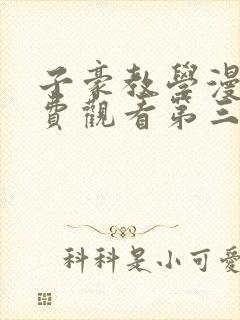 子豪教學漫
費觀看第三
科科是小可愛